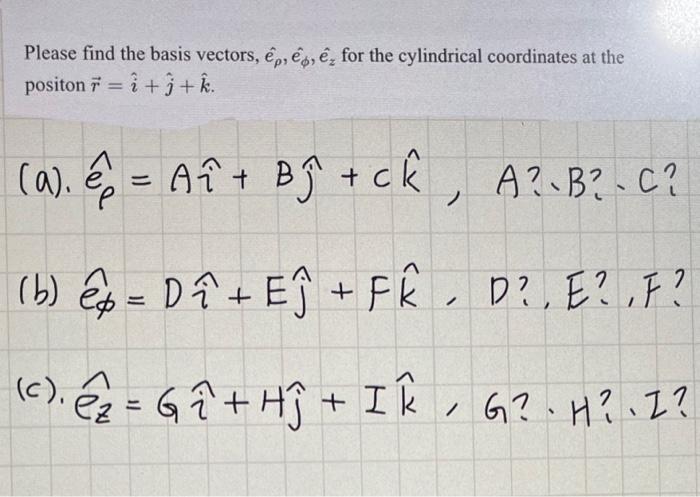 Please find the basis vectors, ê_ρ, ê_ϕ, ê_z for the cylindrical coordinates at the
positon r⃗ = î + ĵ + k̂.
(a). ê_ρ = Aî + Bĵ + Ck̂, A?、B?、C?
(b) ê_ϕ = Dî + Eĵ + Fk̂, D?, E?, F?
(c). ê_z = Gî + Hĵ + Ik̂, G?、H?、I?